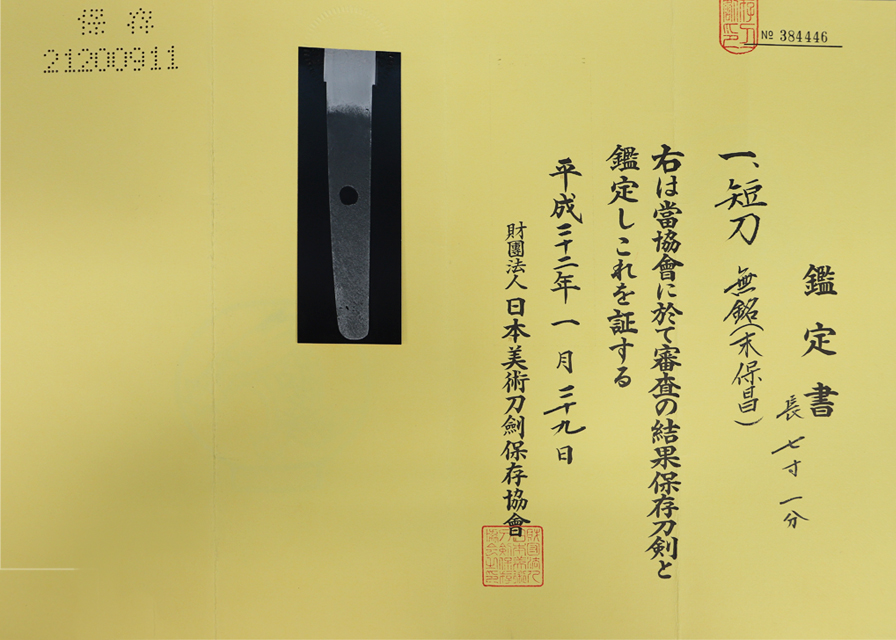 保存
21200911
№ 384446
鑑定書
一、短刀 無銘(末保昌)
長 七寸一分
右は當協會に於て審査の結果保存刀剣と
鑑定しこれを証する
平成二十二年 一月 二十九日
財團法人 日本美術刀劍保存協會